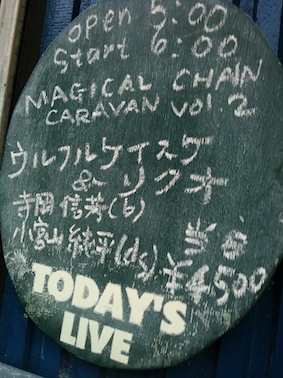 open 5:00
Start 6:00
MAGICAL CHAIN
CARAVAN VOL.2
ウルフルケイスケ
&リクオ
寺岡信芳(b)
小宮山純平(ds)
当日
¥4,500
TODAY'S
LIVE